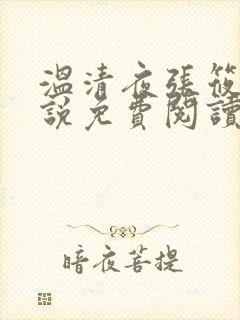 溫清夜張筱
說免費閱讀
暗夜菩提